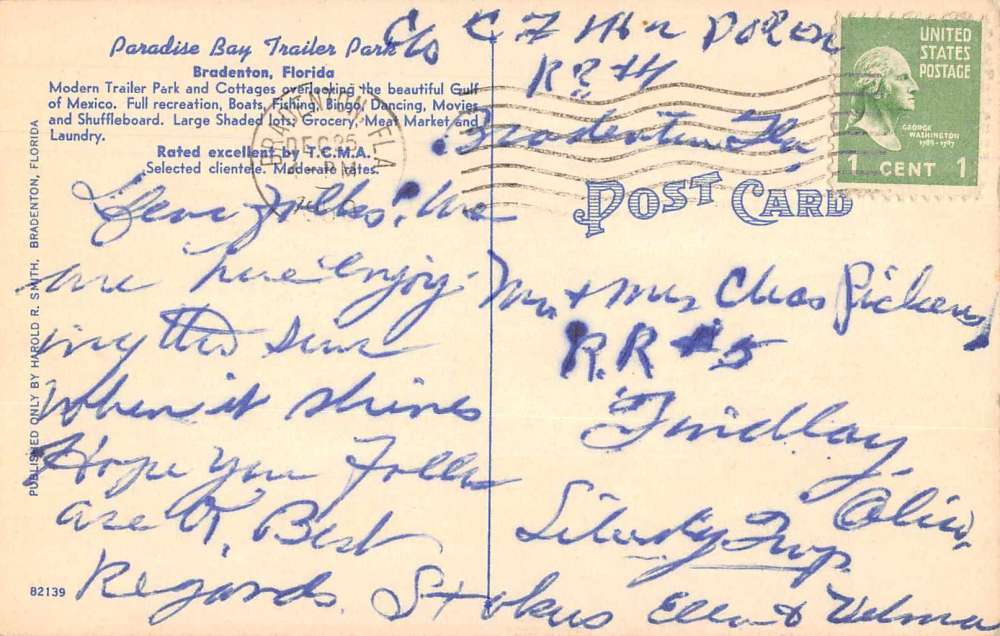 Paradise Bay Trailer Park
Bradenton, Florida
Modern Trailer Park and Cottages overlooking the beautiful Gulf
of Mexico. Full recreation, Boats, Fishing, Bingo, Dancing, Movies
and Shuffleboard. Large Shaded lots, Grocery, Meat Market and
Laundry.
Rated excellent by T.C.M.A.
Selected clientele. Moderate rates.
c/o C F
R R #4
Bradenton Fla
BRADENTON FLA
DEC 26
PM
UNITED
STATES
POSTAGE
GEORGE
WASHINGTON
1789-1797
1 CENT 1
POST CARD
Dear Folks: We
are here enjoy-
ing the sun
when it shines
Hope you Folks
are OK, Best
Regards. Stokus Ella & Velma
Mr & Mrs Chas Pickens
R.R #5
Findlay,
Ohio,
Liberty Twp
PUBLISHED ONLY BY HAROLD R. SMITH, BRADENTON, FLORIDA
82139